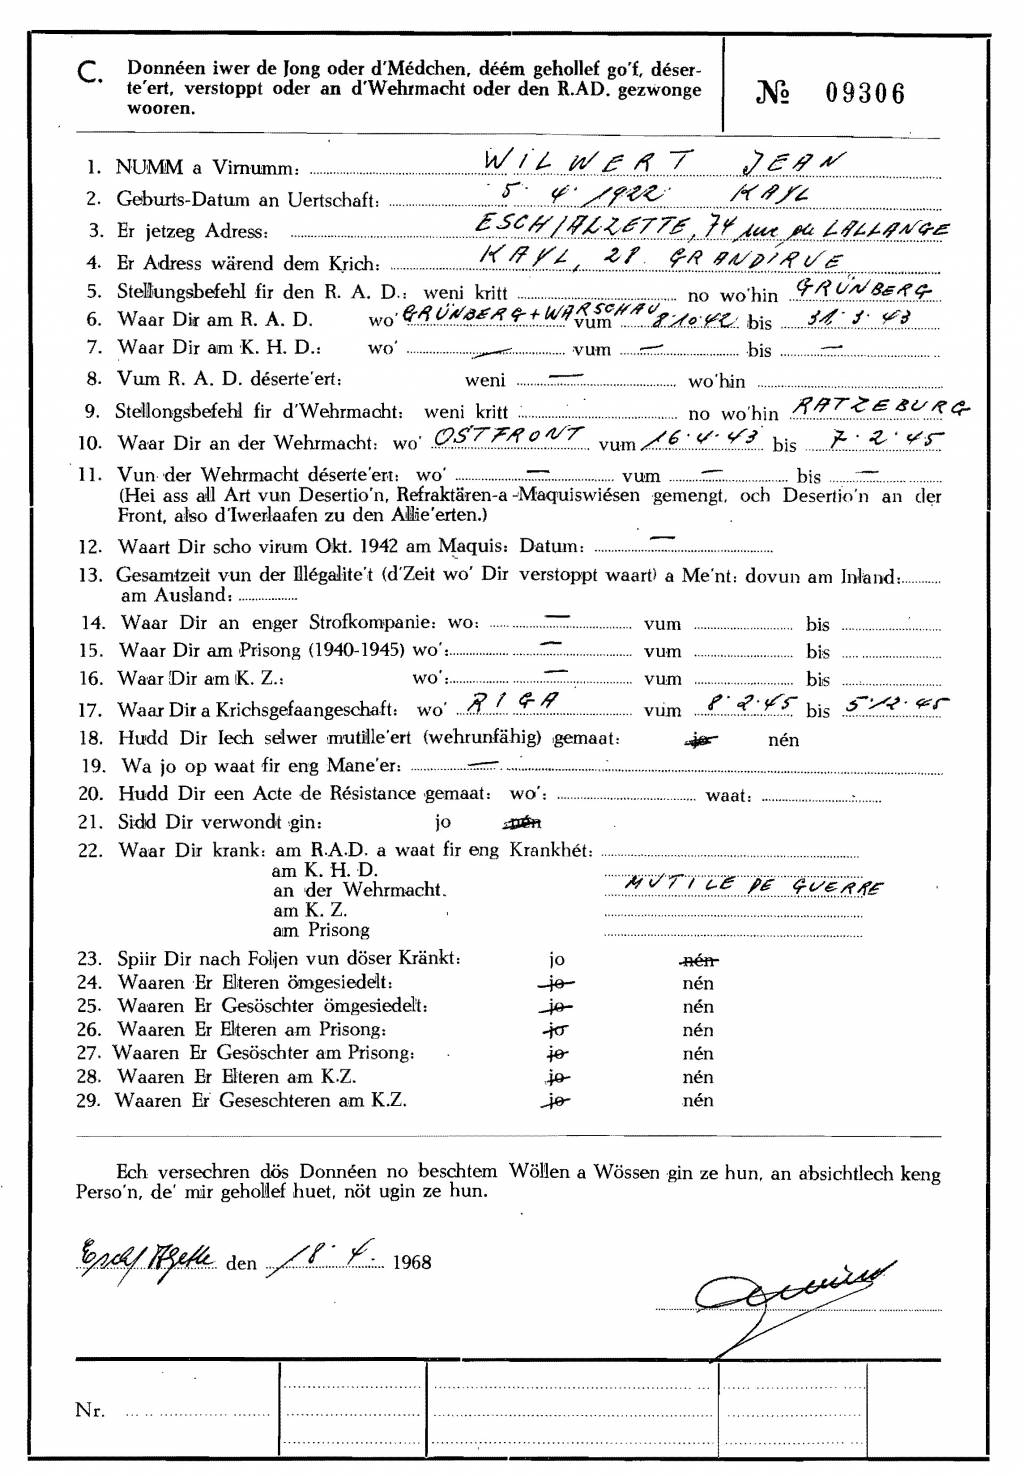 C. Donnéen iwer de Jong oder d'Médchen, déém gehollef go'f, déser-
te'ert, verstoppt oder an d'Wehrmacht oder den R.AD. gezwonge
wooren.
№ 09306
1. NUMM a Virnumm: WILWERT JEAN
2. Geburts-Datum an Uertschaft: 5. 4. 1922 KAYL
3. Er jetzeg Adress: ESCH/ALZETTE, 74 rue de LALLANGE
4. Er Adress wärend dem Krich: KAYL, 28 GRANDIRUE
5. Stellungsbefehl fir den R. A. D.: weni kritt no wo'hin GRÜNBERG
6. Waar Dir am R. A. D. wo' GRÜNBERG + WARSCHAU vum 8.10.42 bis 31.3.43
7. Waar Dir am K. H. D.: wo' — vum — bis —
8. Vum R. A. D. déserte'ert: weni — wo'hin
9. Stellongsbefehl fir d'Wehrmacht: weni kritt no wo'hin RATZEBURG
10. Waar Dir an der Wehrmacht: wo' OSTFRONT vum 16.4.43 bis 7.2.45
11. Vun der Wehrmacht déserte'ert: wo' — vum — bis —
(Hei ass all Art vun Desertio'n, Refraktären-a-Maquiswiésen gemengt, och Desertio'n an der
Front, also d'Iwerlaafen zu den Allie'erten.)
12. Waart Dir scho virum Okt. 1942 am Maquis: Datum: —
13. Gesamtzeit vun der Illégalite't (d'Zeit wo' Dir verstoppt waart) a Me'nt: dovun am Inland:
am Ausland:
14. Waar Dir an enger Strofkompanie: wo: — vum bis
15. Waar Dir am Prisong (1940-1945) wo': — vum bis
16. Waar Dir am K. Z.: wo': — vum bis
17. Waar Dir a Krichsgefaangeschaft: wo' RIGA vum 8.2.45 bis 5.12.45
18. Hudd Dir Iech selwer mutille'ert (wehrunfähig) gemaat: jo nén
19. Wa jo op waat fir eng Mane'er: —
20. Hudd Dir een Acte de Résistance gemaat: wo': waat:
21. Sidd Dir verwondt gin: jo nén
22. Waar Dir krank: am R.A.D. a waat fir eng Krankhét:
am K. H. D.
an der Wehrmacht. MUTILE DE GUERRE
am K. Z.
am Prisong
23. Spiir Dir nach Foljen vun döser Kränkt: jo nén
24. Waaren Er Elteren ömgesiedelt: jo nén
25. Waaren Er Gesöschter ömgesiedelt: jo nén
26. Waaren Er Elteren am Prisong: jo nén
27. Waaren Er Gesöschter am Prisong: jo nén
28. Waaren Er Elteren am K.Z. jo nén
29. Waaren Er Geseschteren am K.Z. jo nén
Ech versechren dös Donnéen no beschtem Wöllen a Wössen gin ze hun, an absichtlech keng
Perso'n, de' mir gehollef huet, nöt ugin ze hun.
Esch/Alzette den 18.4. 1968
Nr.